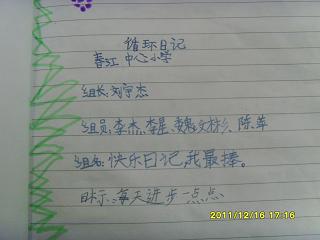 循环日记
春江中心小学
组长:刘宇杰
组员:李杰、李星、魏文彬、陈萍
组名:快乐日记,我最棒。
目标:每天进步一点点
2011/12/16 17:16